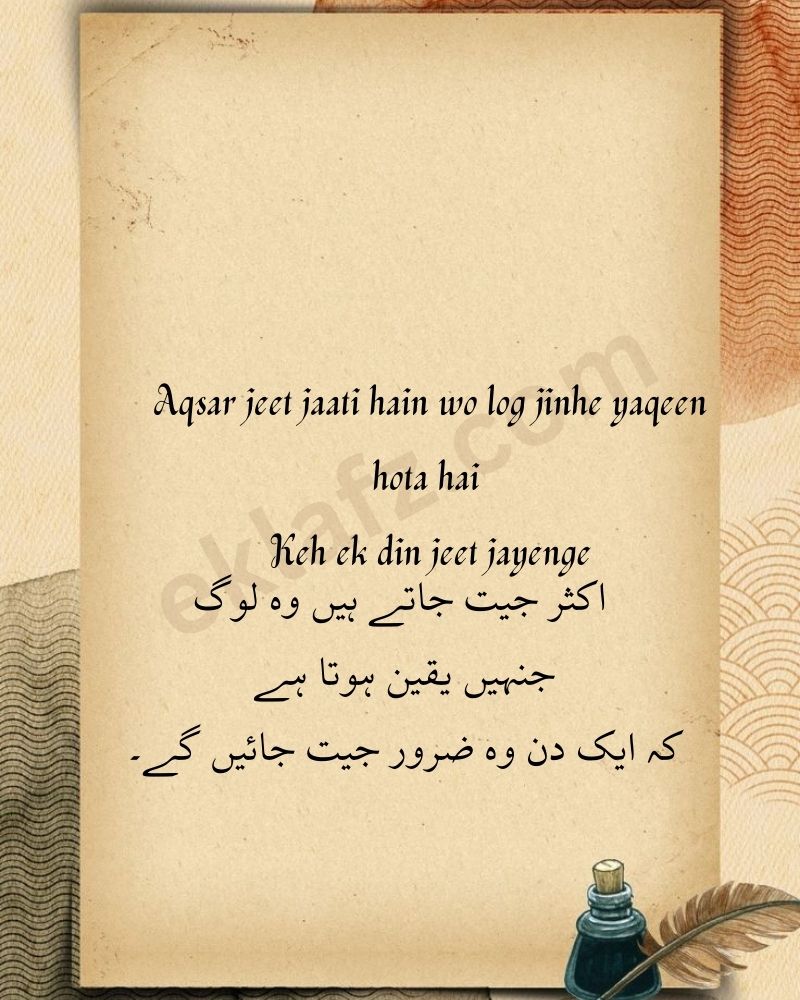 Aqsar jeet jaati hain wo log jinhe yaqeen
hota hai
Keh ek din jeet jayenge
اکثر جیت جاتے ہیں وہ لوگ
جنہیں یقین ہوتا ہے
کہ ایک دن وہ ضرور جیت جائیں گے۔
eklafz.com